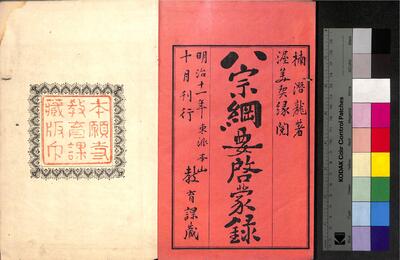 楠潛龍著
渥美契緣閲
八宗綱要啓蒙録
明治十一年 東派本山
十月刊行 教育課藏
本願寺
教育課
藏版印
KODAK Color Control Patches